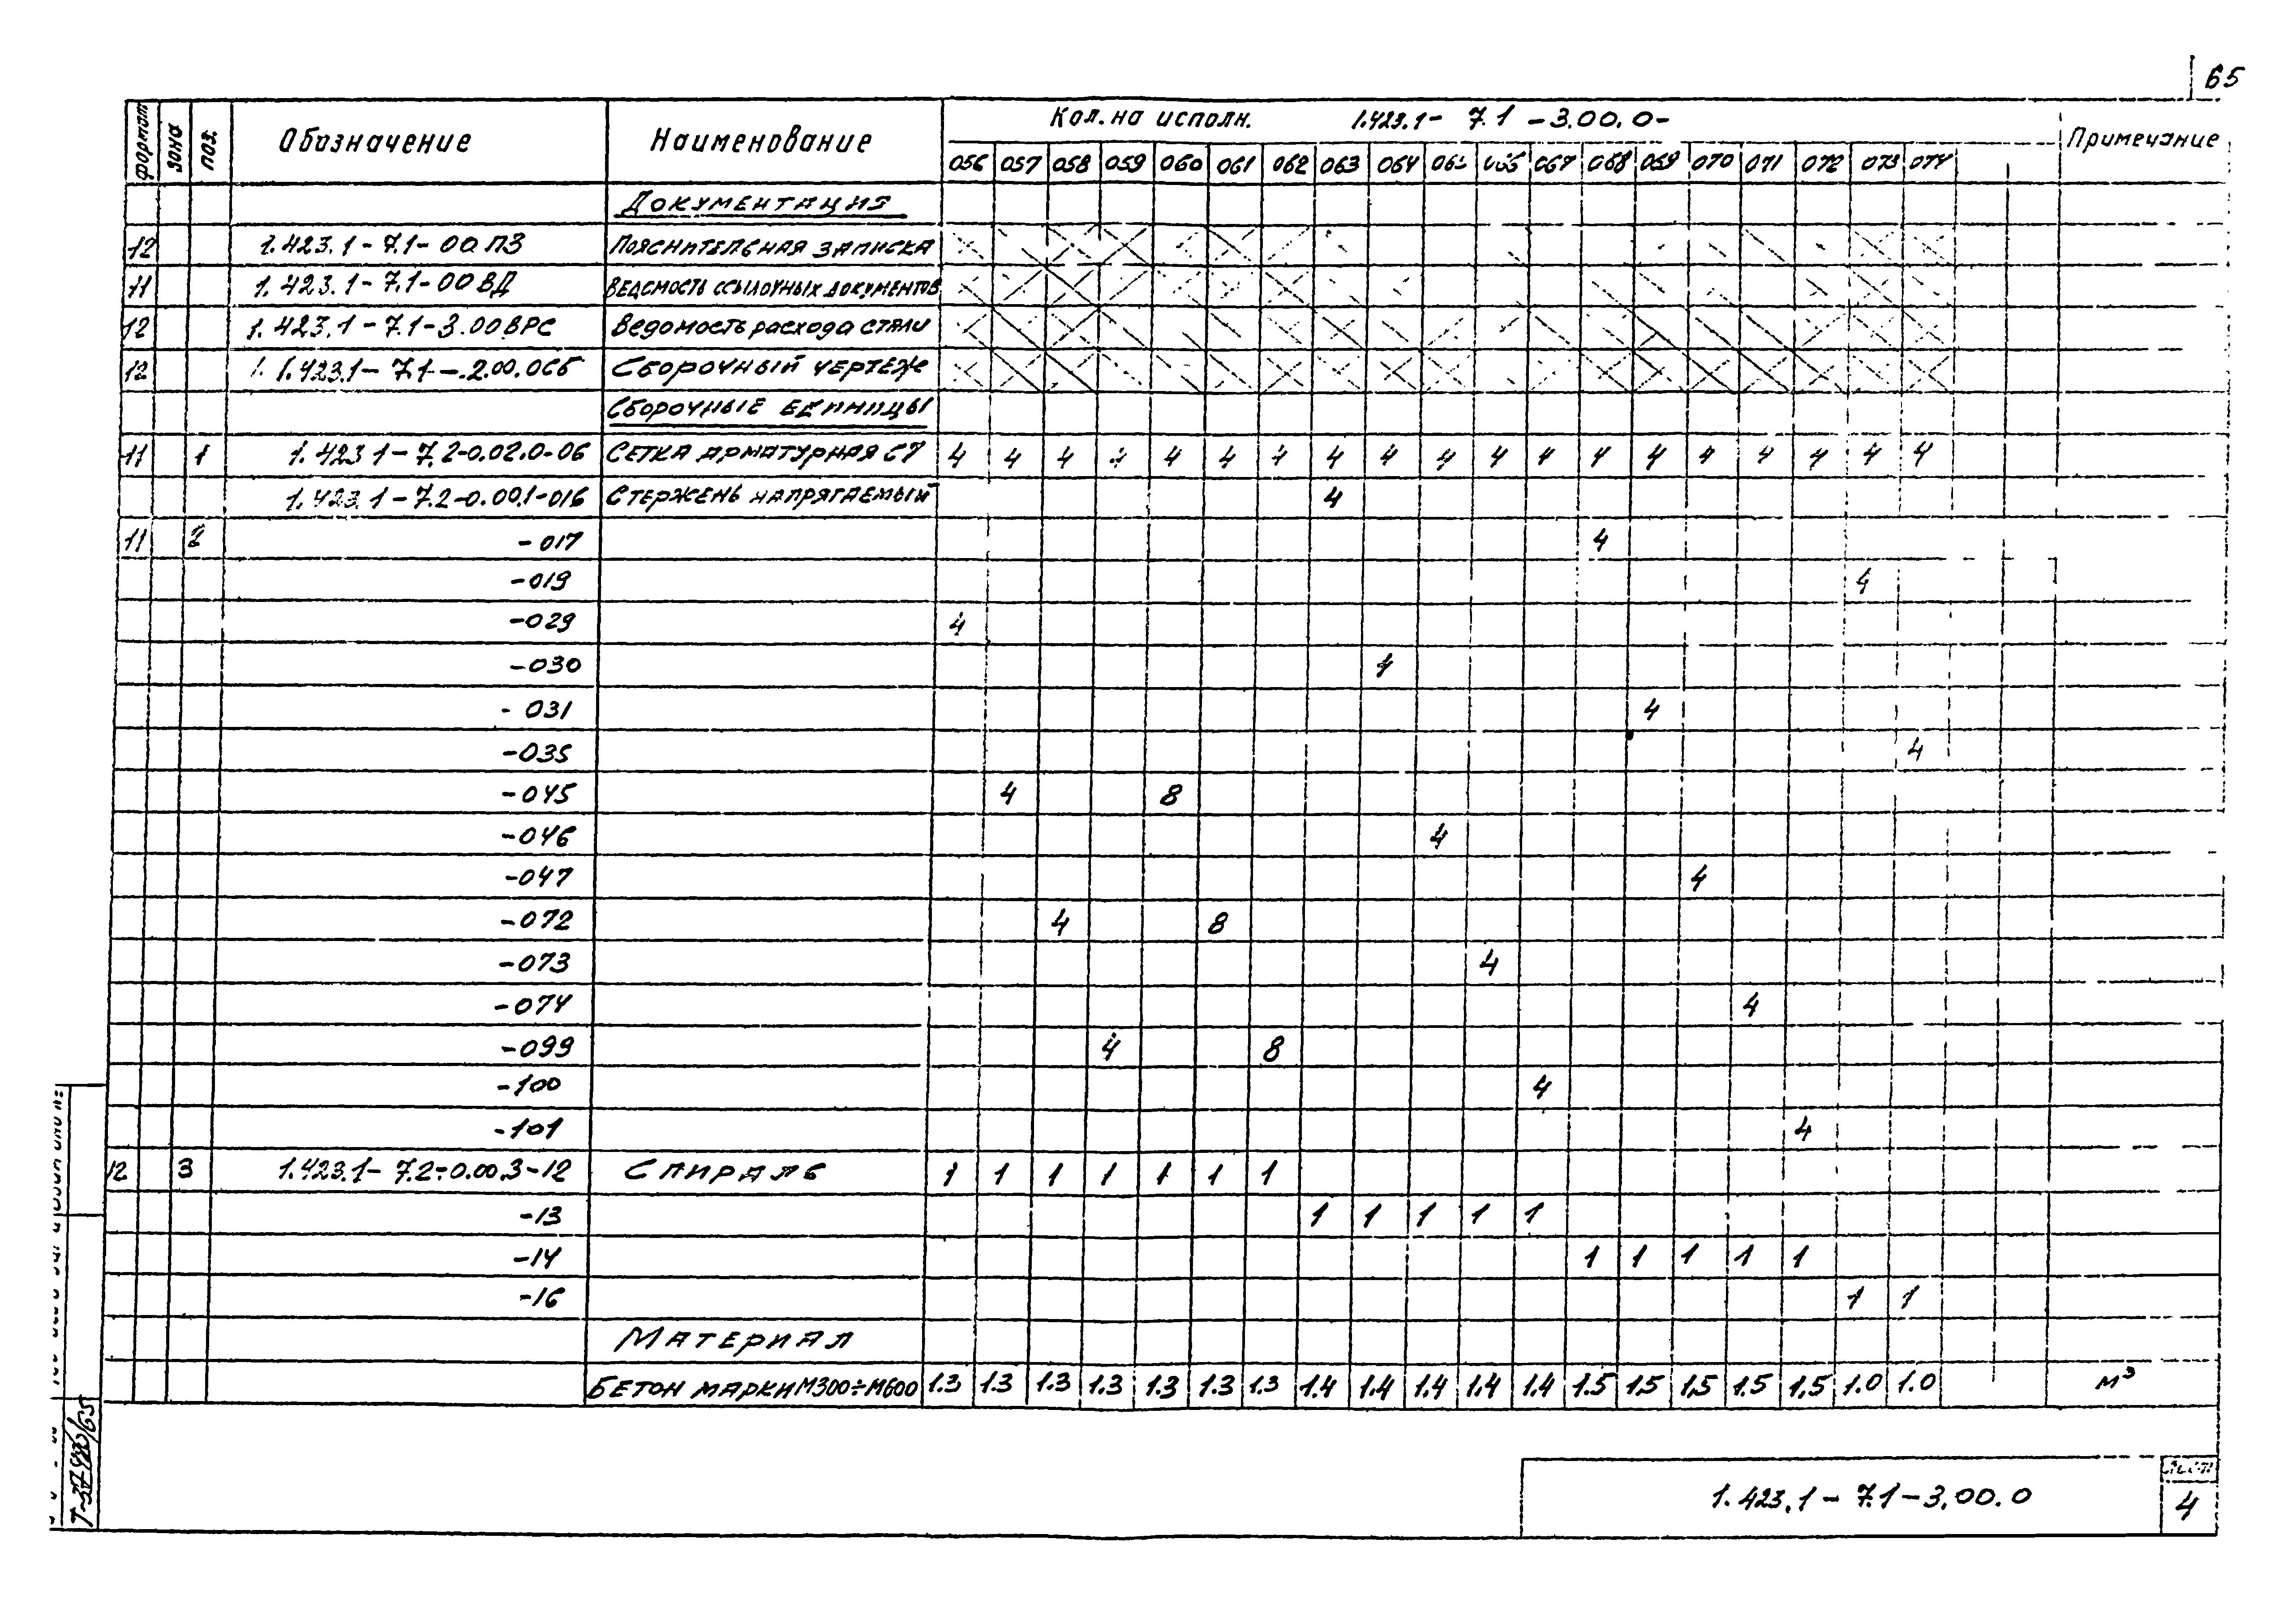 65
формат зона поз. Обозначение Наименование Кол. на исполн. 1.423.1- 7.1 -3.00.0- Примечание
056 057 058 059 060 061 062 063 064 065 066 067 068 069 070 071 072 073 074
Документация
12 1.423.1-7.1-00ПЗ Пояснительная записка
11 1.423.1-7.1-00ВД Ведомость ссылочных документов
12 1.423.1-7.1-3.00ВРС Ведомость расхода стали
12 1.423.1-7.1-2.00.0СБ Сборочный чертеж
Сборочные единицы
11 1 1.423 1-7.2-0.02.0-06 Сетка арматурная С7 4 4 4 4 4 4 4 4 4 4 4 4 4 4 4 4 4 4 4
1.423.1-7.2-0.00.1-016 Стержень напрягаемый 4
11 2 -017 4
-019 4
-029 4
-030 4
-031 4
-035 4
-045 4 8
-046 4
-047 4
-072 4 8
-073 4
-074 4
-099 4 8
-100 4
-101 4
12 3 1.423.1-7.2-0.00.3-12 Спираль 1 1 1 1 1 1 1
-13 1 1 1 1 1
-14 1 1 1 1 1
-16 1 1
Материал
Бетон марки М300÷М600 1.3 1.3 1.3 1.3 1.3 1.3 1.3 1.4 1.4 1.4 1.4 1.4 1.5 1.5 1.5 1.5 1.5 1.0 1.0 м³
1.423.1-7.1-3.00.0
Лист
4